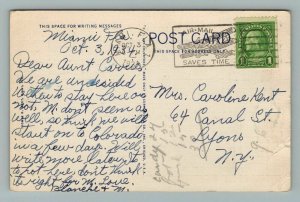 THIS SPACE FOR WRITING MESSAGES
POST CARD
THIS SPACE FOR ADDRESS ONLY
AIR-MAIL
SAVES TIME
Miami Fla.
Oct. 3, 1934
Dear Aunt Carrie:
We are undecided
whether to stay here or
not. M. don't seem as
well, so think we will
start on to Colorado
in a few days. Will
write more later. It
to hot here don't think
it right for M. Love
Blanche & M.
Mrs. Caroline Kent
64 Canal St
Lyons
N.Y.